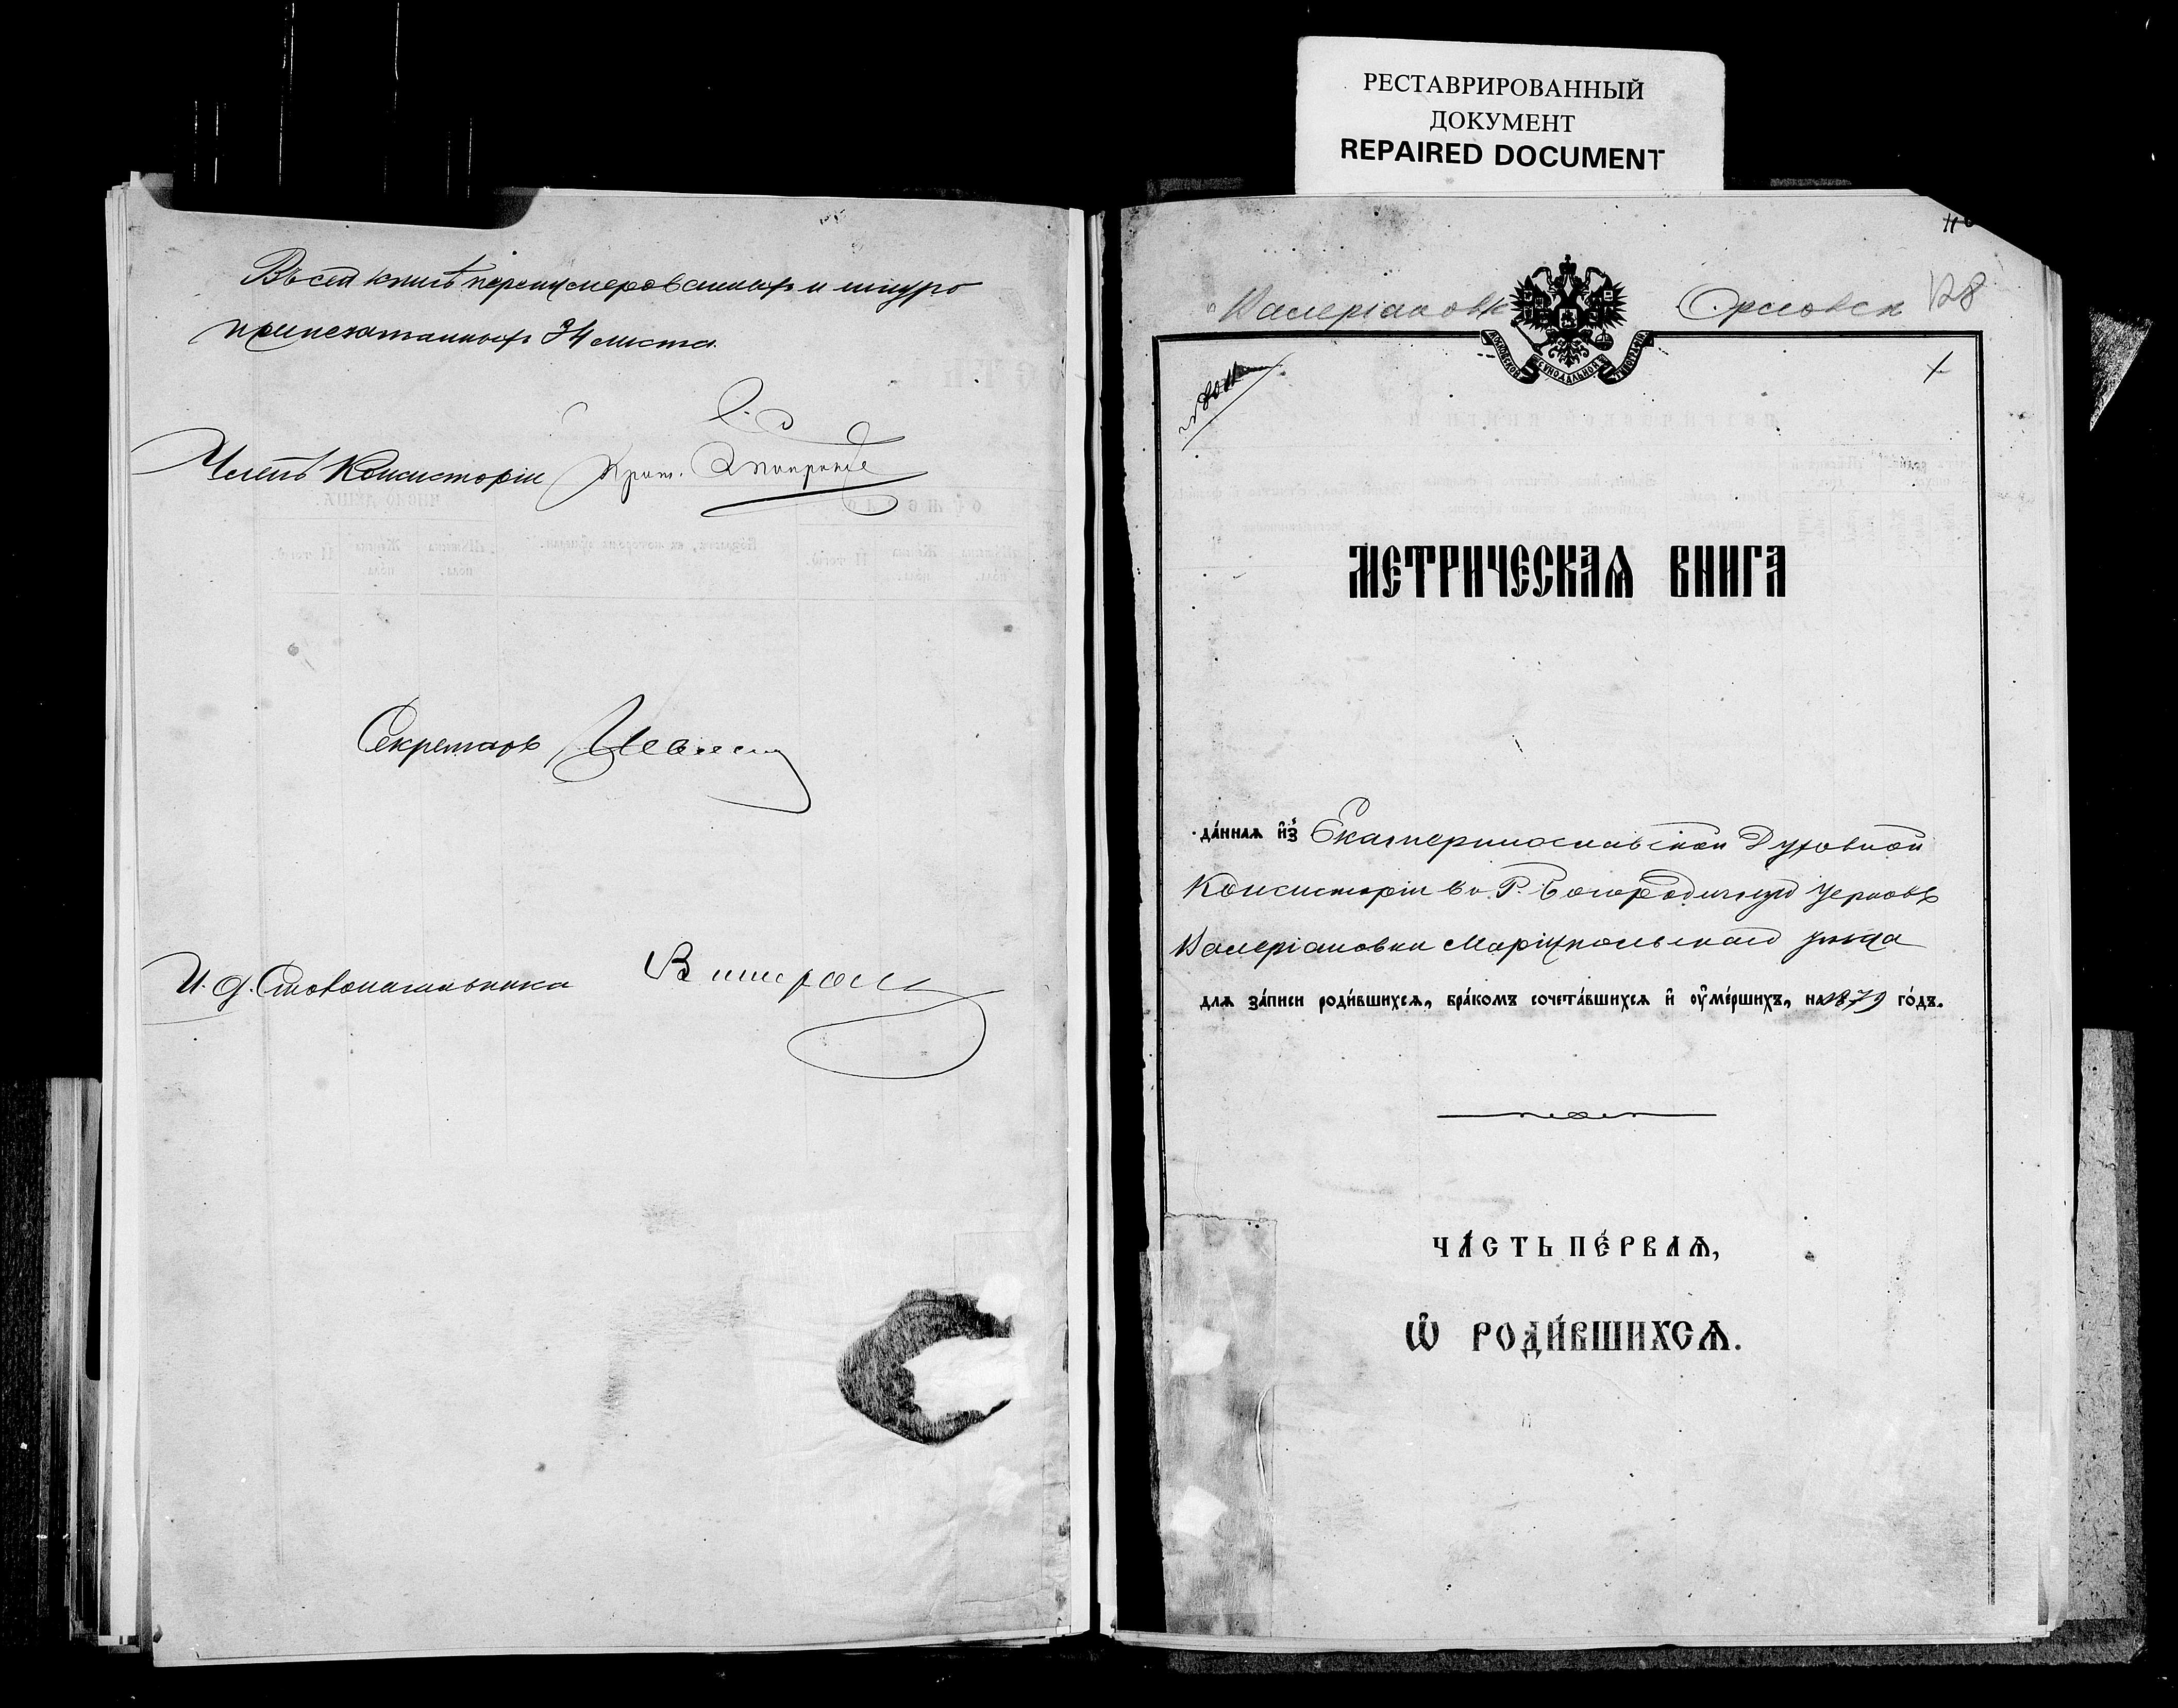 РЕСТАВРИРОВАННЫЙ
ДОКУМЕНТ
REPAIRED DOCUMENT
Въ сей книгѣ перенумерованныхъ и шнуро
припечатанныхъ 34 листа.
Членъ Консисторіи Прот.
Секретарь
И. д. Столоначальника
Валеріановк Орловск 128
МОСКОВСКОЙ СѴНОДАЛЬНОЙ ТИПОГРАФІИ
МЕТРИЧЕСКАѦ КНИГА
да́ннаѧ и҆з̾ Екатеринославской Духовной
Консисторіи въ Р. Богородичную церковь
Валеріановки Маріупольскаго уѣзда
длѧ за́писи роди́вшихсѧ, бра́комъ сочета́вшихсѧ и҆ ᲂу҆ме́ршихъ, на 1879 го́дъ.
ЧА́СТЬ ПЕ́РВАѦ,
Ѽ РОДИ́ВШИХСѦ.